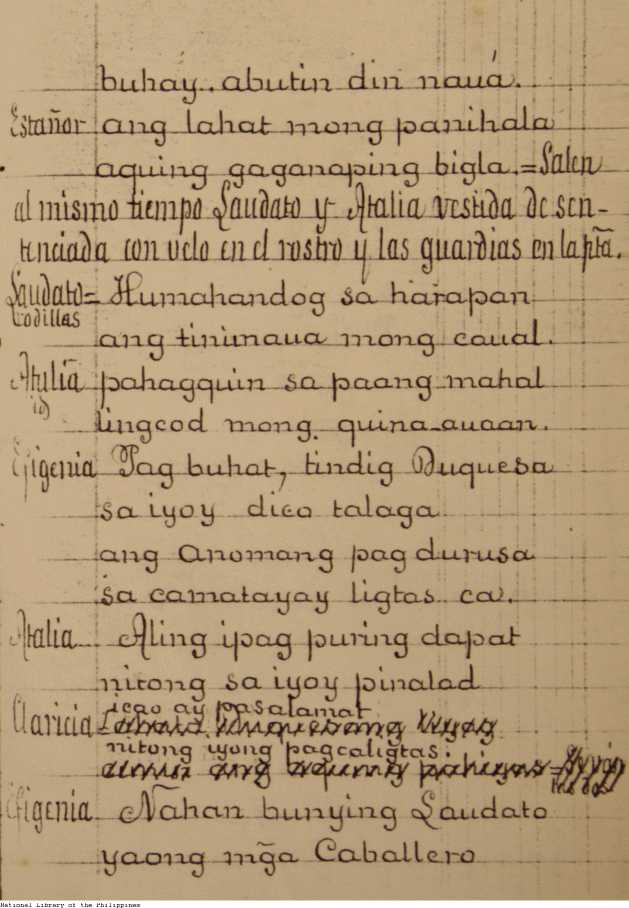 buhay. abutin din nauá.
Estañor ang lahat mong panihala
aquing gaganaping bigla.=Salen
al mismo tiempo Laudato y Atalia vestida de sen-
tenciada con velo en el rostro y las guardias en la pta.
Laudato= Humahandog sa harapan
Rodillas
ang tinunaua mong caual.
Atalia pahagquin sa paang mahal
id
lingcod mong quina-auaan.
Efigenia Pag buhat, tindig Duquesa
sa iyoy dico talaga
ang anomang pag durusa
sa camatayay ligtas ca.
Atalia Aling ipag puring dapat
nitong sa iyoy pinalad
icao ay pasalamat
Claricia
nitong iyong pagcaligtas.
Efigenia Nahan bunying Laudato
yaong mg̃a Caballero
National Library of the Philippines